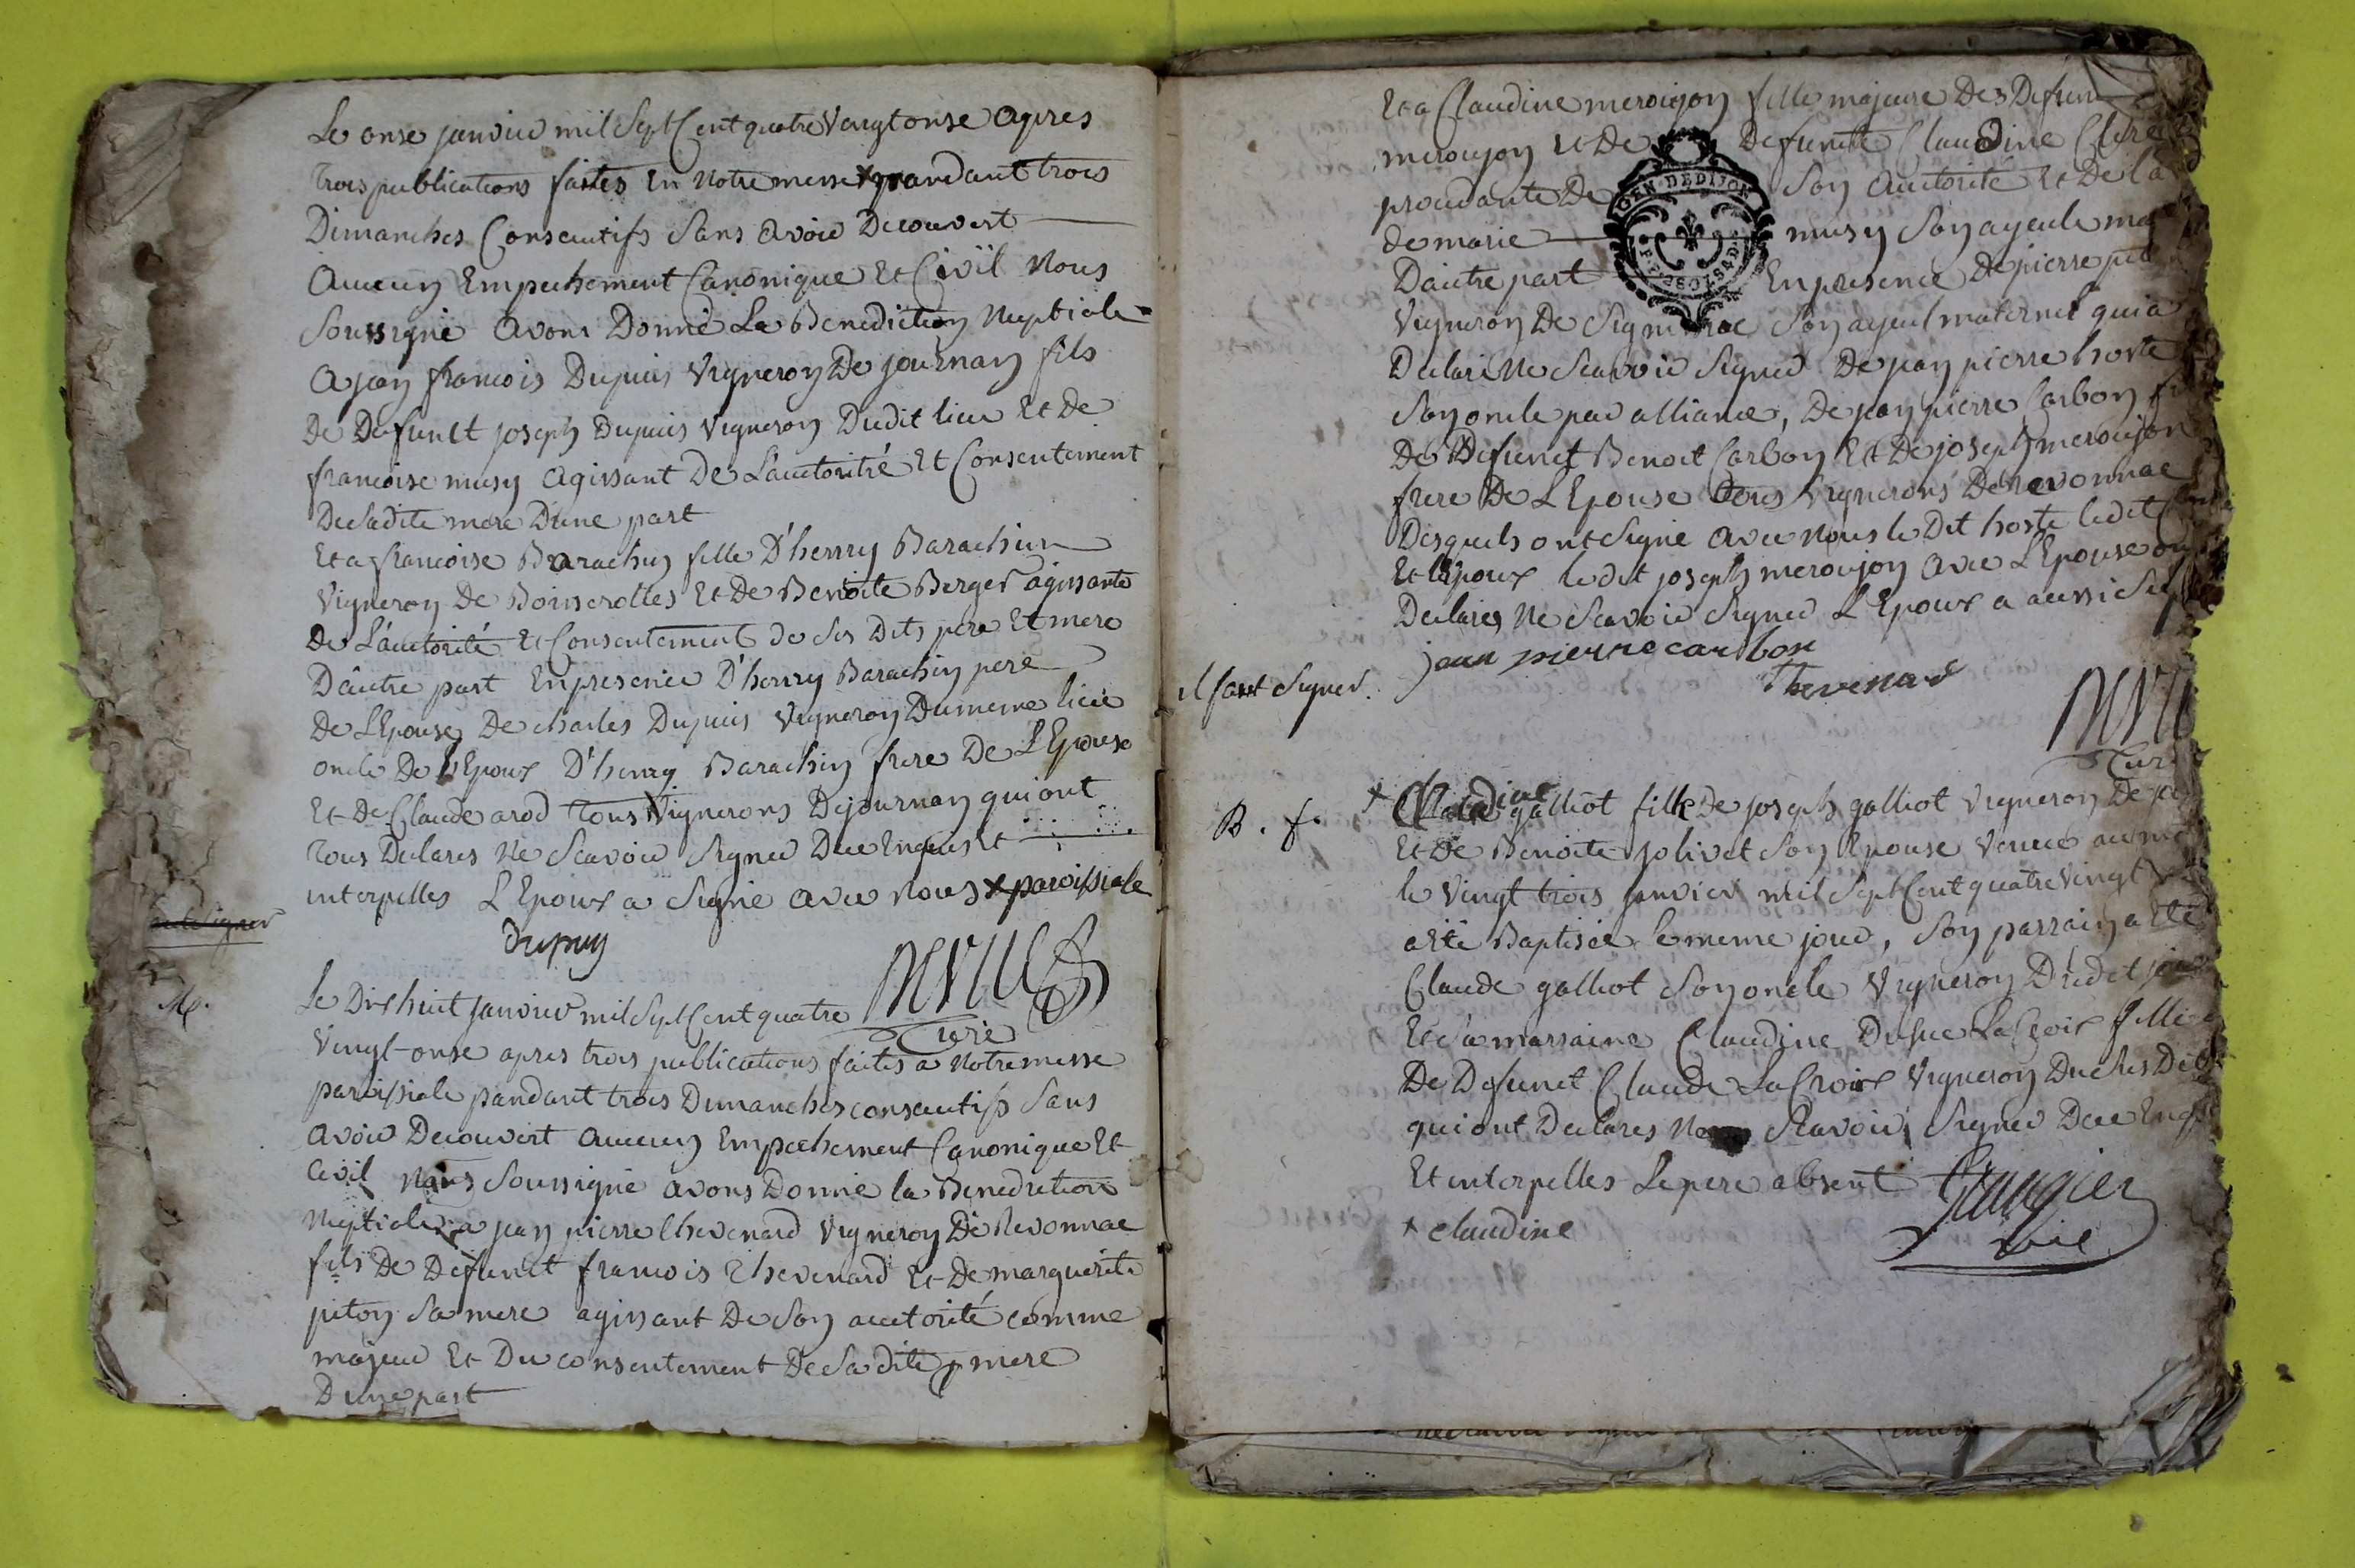 Le onse janvier mil Sept Cent quatre Vingt onse apres
trois publications faites En Notre messe x pandant trois
Dimanches Consecutifs Sans avoir Decouvert
Aucun Empechement Canonique Et Civil Nous
Soussigné avons Donné La Benediction Nuptiale
a jan francois Dupuis Vigneron De journan fils
De Defunct joseph Dupuis Vigneron Dudit lieu Et De
francoise musy agissant De L'autorité Et Consentement
De Sadite mere D'une part
Et a francoise Barachin fille D'henry Barachin
Vigneron De Boisserolles Et De Benoite Berger agissante
De L'autorité Et Consentement de Ses Dits pere Et mere
D'autre part En presence D'henry Barachin pere
De L'Epouse De charles Dupuis Vigneron Du meme lieu
oncle De L'Epoux D'henry Barachin frere De L'Epouse
Et De Claude arod Tous Vignerons De journan qui ont
Tous Declares Ne Scavoir Signer De ce Enquis Et
interpelles L'Epoux a Signé avec Nous x paroissiale
Dupuy
Curé
M.
Le Dix huit janvier mil Sept Cent quatre
Vingt-onse apres trois publications faites a Notre messe
paroissiale pandant trois Dimanches consecutifs Sans
avoir Decouvert aucun Empechement Canonique Et
Civil Nous Soussigné avons Donné la Benediction
Nuptiale a jan pierre thevenard Vigneron De Revonnac
fils De Defunct francois thevenard Et De marguerite
piton Sa mere agissant De Son autorité comme
majeur Et Du consentement De Sa dite mere
D'une part
Et a Claudine meroujon fille majeure Des Defunct
meroujon et De Defuncte Claudine
De Son autorité Et De la
de marie musy Son ayeule
D'autre part En presence De pierre
Vigneron De Son ayeul maternel qui a
Declaré Ne Scavoir Signer De jan pierre hoste
Son oncle par alliance, De jan pierre Carbon
De Defunct Benoit Carbon Et De joseph meroujon
frere De L'Epouse Tous Vignerons De revonnac
Desquels ont Signé avec Nous le Dit hoste ledit
Et L'Epoux le dit joseph meroujon avec L'Epouse
Declares Ne Scavoir Signer L'Epoux a aussi
jean pierre carbon
il faut Signer.
Thevenard
B. f.
x Claudine galliot fille De joseph galliot Vigneron De
Et De Benoite jolivet Son Epouse Venue au
le Vingt trois janvier mil Sept Cent quatre Vingt
a Eté Baptisée le meme jour, Son parrain a Eté
Claude galliot Son oncle Vigneron Dudit
Et Sa marraine Claudine LaCroix fille
De Defunct Claude LaCroix Vigneron
qui ont Declares Ne Scavoir Signer De ce
Et interpelles Le pere absent
x claudine